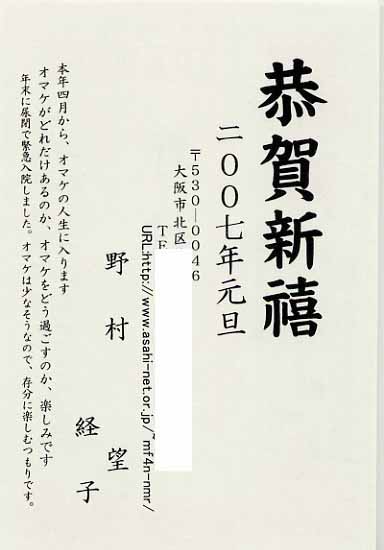 恭賀新禧
二〇〇七年元旦
〒530―0046
大阪市北区
TE
URL:http://www.asahi-net.or.jp/~mf4n-nmr/
野村 望
経子
本年四月から、オマケの人生に入ります
オマケがどれだけあるのか、オマケをどう過ごすのか、楽しみです
年末に尿閉で緊急入院しました。オマケは少なそうなので、存分に楽しむつもりです。